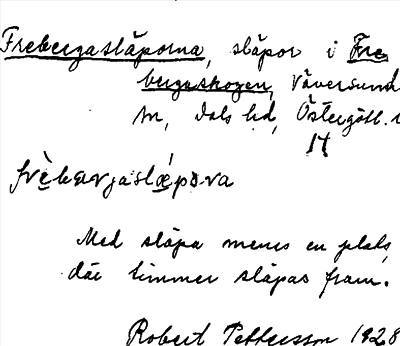 Frebergasläporna, släpor i Fre
bergaskogen, Väversund
sn, Dals hd, Östergötl. l
14
frèbærjaslǽpɷrna
Med släpa menes en plats,
där timmer släpas fram.
Robert Pettersson 1928